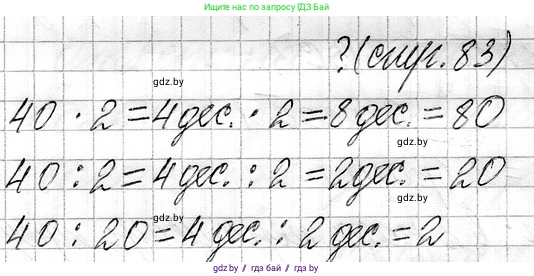 Ищите нас по запросу ГДЗ БАЙ
?(стр. 83)
gdz.by
40 · 2 = 4 дес. · 2 = 8 дес. = 80
gdz.by
40 : 2 = 4 дес. : 2 = 2 дес. = 20
gdz.by
gdz.by
40 : 20 = 4 дес. : 2 дес. = 2
gdz.by / гдз бай / gdz.by